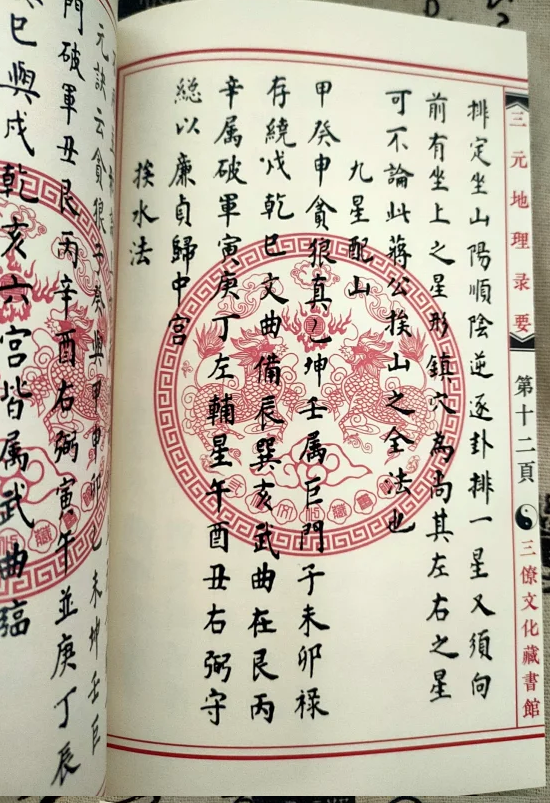 三元地理录要
第十二頁
三僚文化藏書館
排定坐山陽順陰逆逐卦排一星又須向
前有坐上之星形鎮穴為尚其左右之星
可不論此蔣公挨山之全法也
九星配山
甲癸申貪狼真乙坤壬属巨門子未卯禄
存繞戌乾巳文曲備辰巽亥武曲在艮丙
辛属破軍寅庚丁左輔星午酉丑右弼守
総以廉貞歸中宮
挨水法
元訣云貪狼子癸與甲申卯乙未坤壬巨
門破軍丑艮丙辛酉右弼寅午並庚丁辰
巳與戌乾亥六宮皆属武曲臨